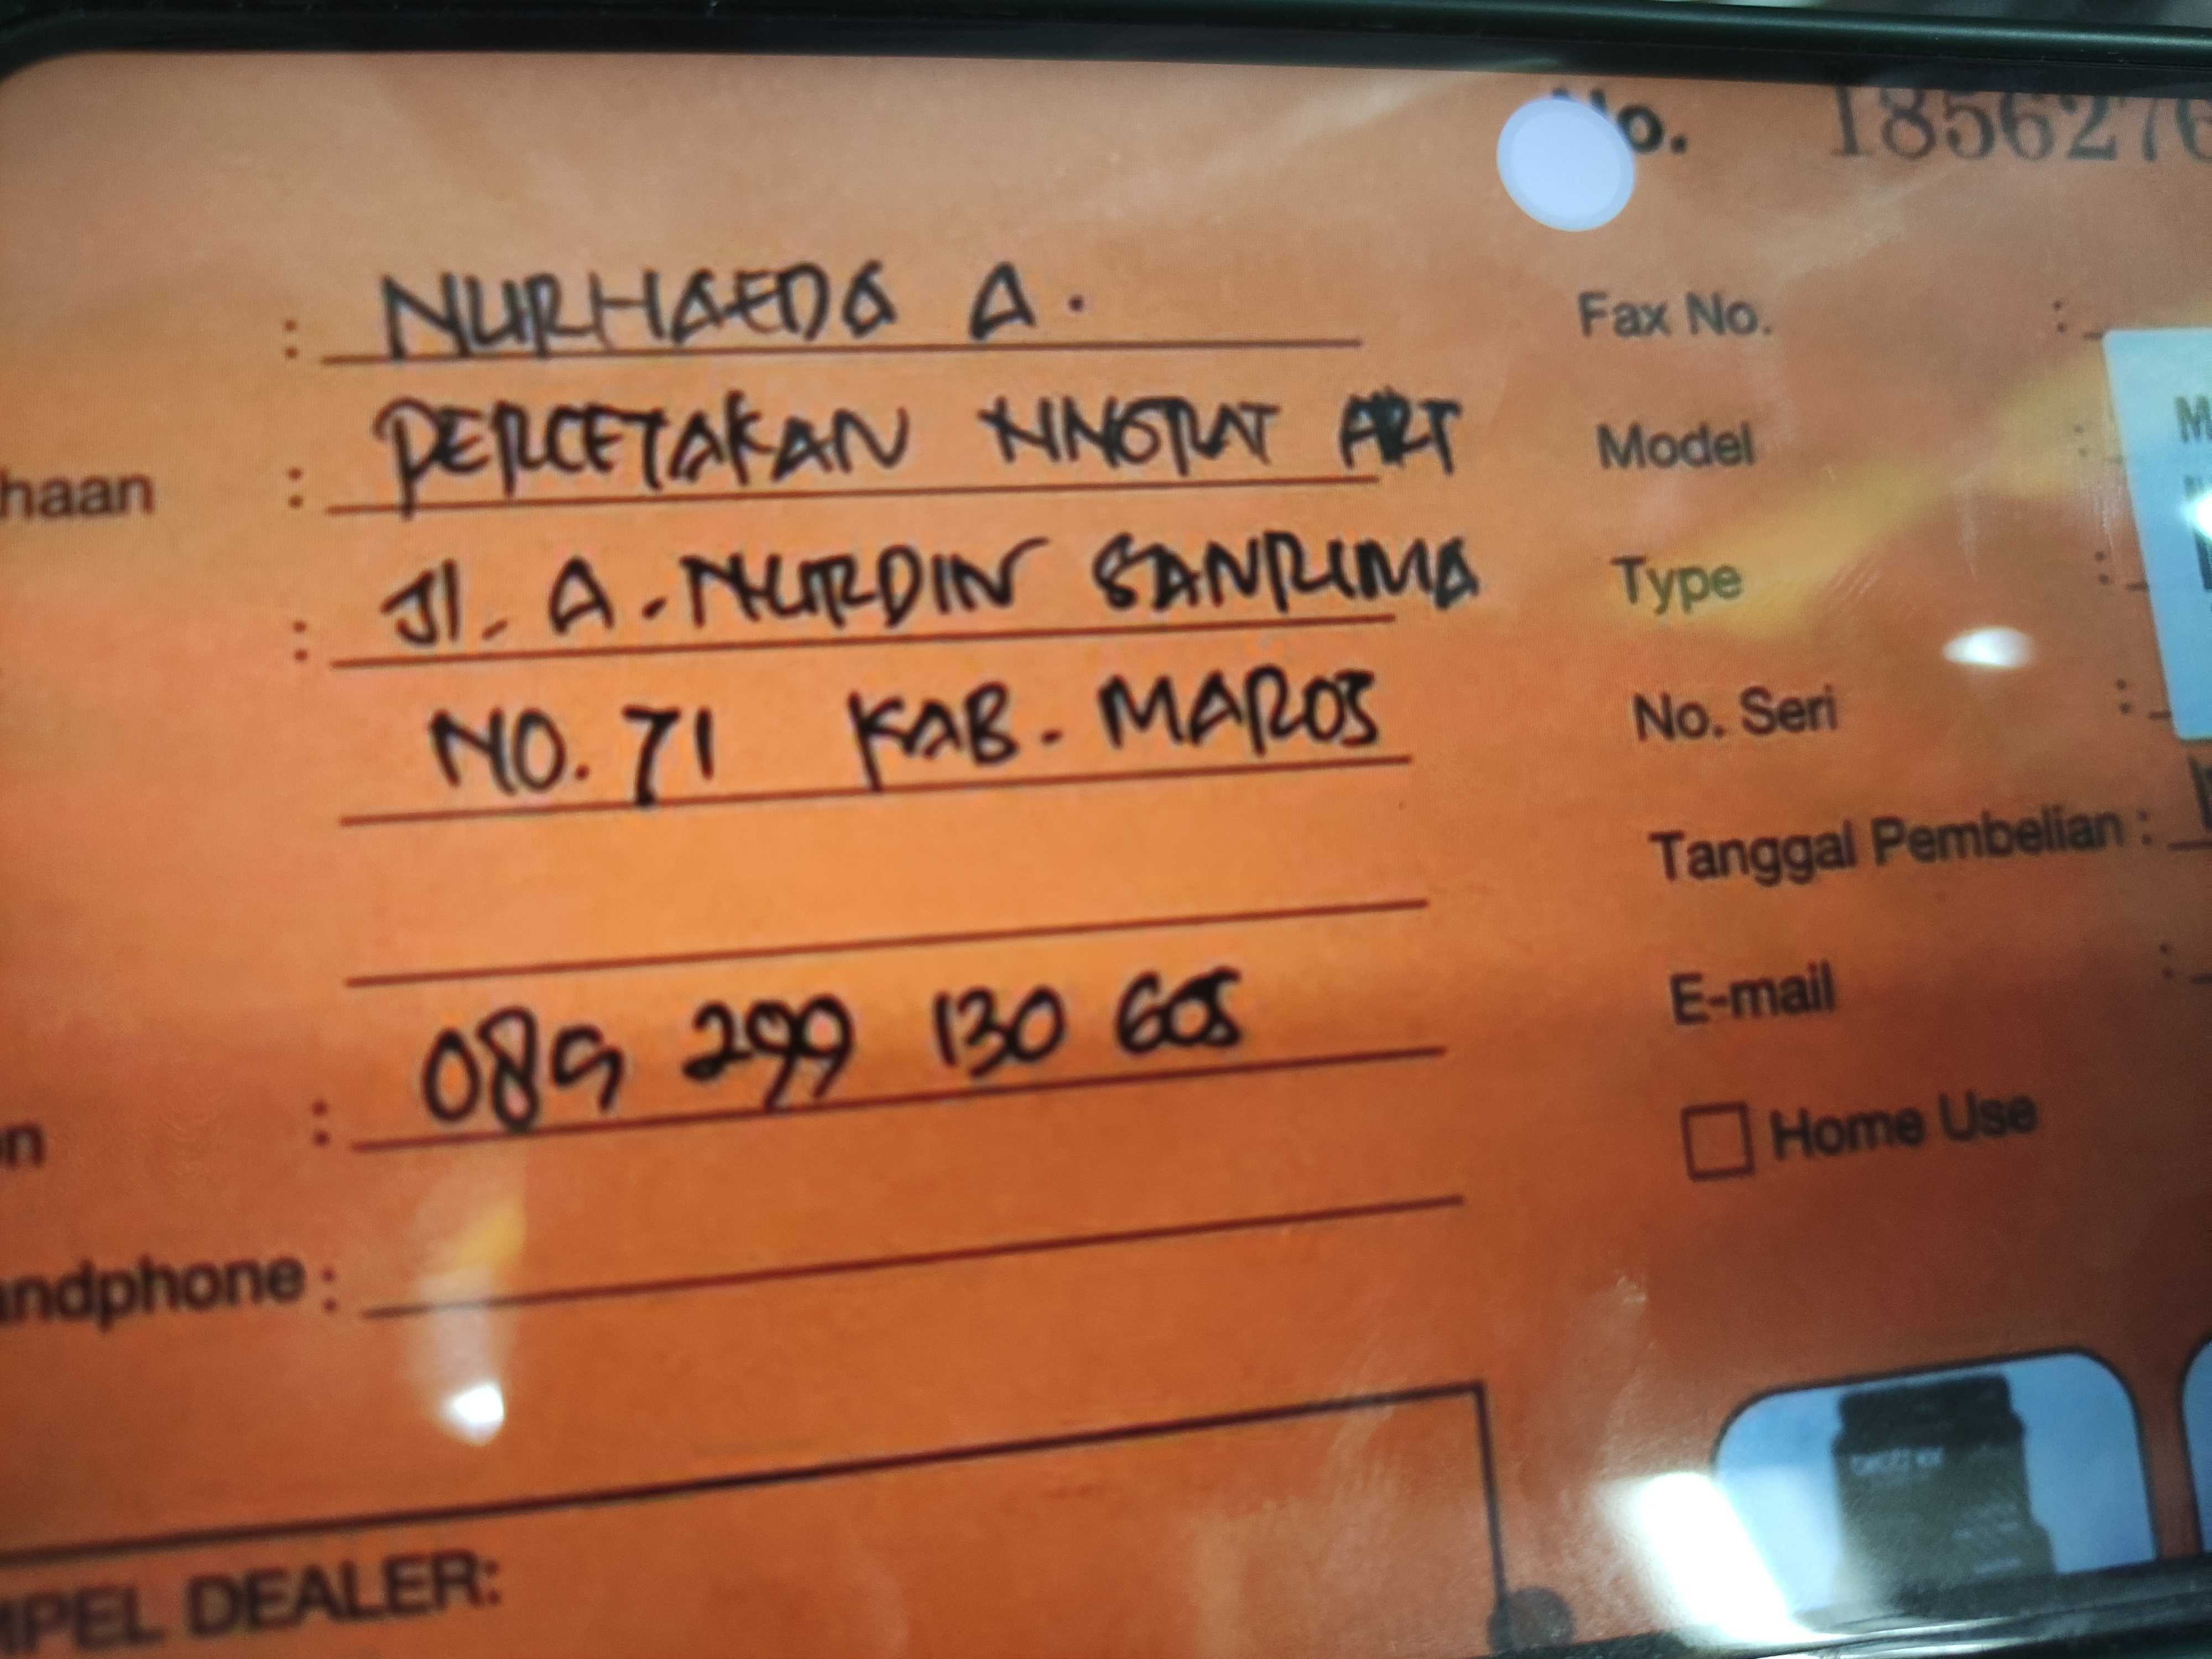 No. 1856276
: NURHAEDA A.
Fax No. :
haan : PERCETAKAN NINGRAT ART
Model :
: Jl. A. NURDIN SANRIMA
Type :
NO. 71 KAB. MAROS
No. Seri :
Tanggal Pembelian :
E-mail :
n : 089 299 130 605
Home Use
andphone :
MPEL DEALER: